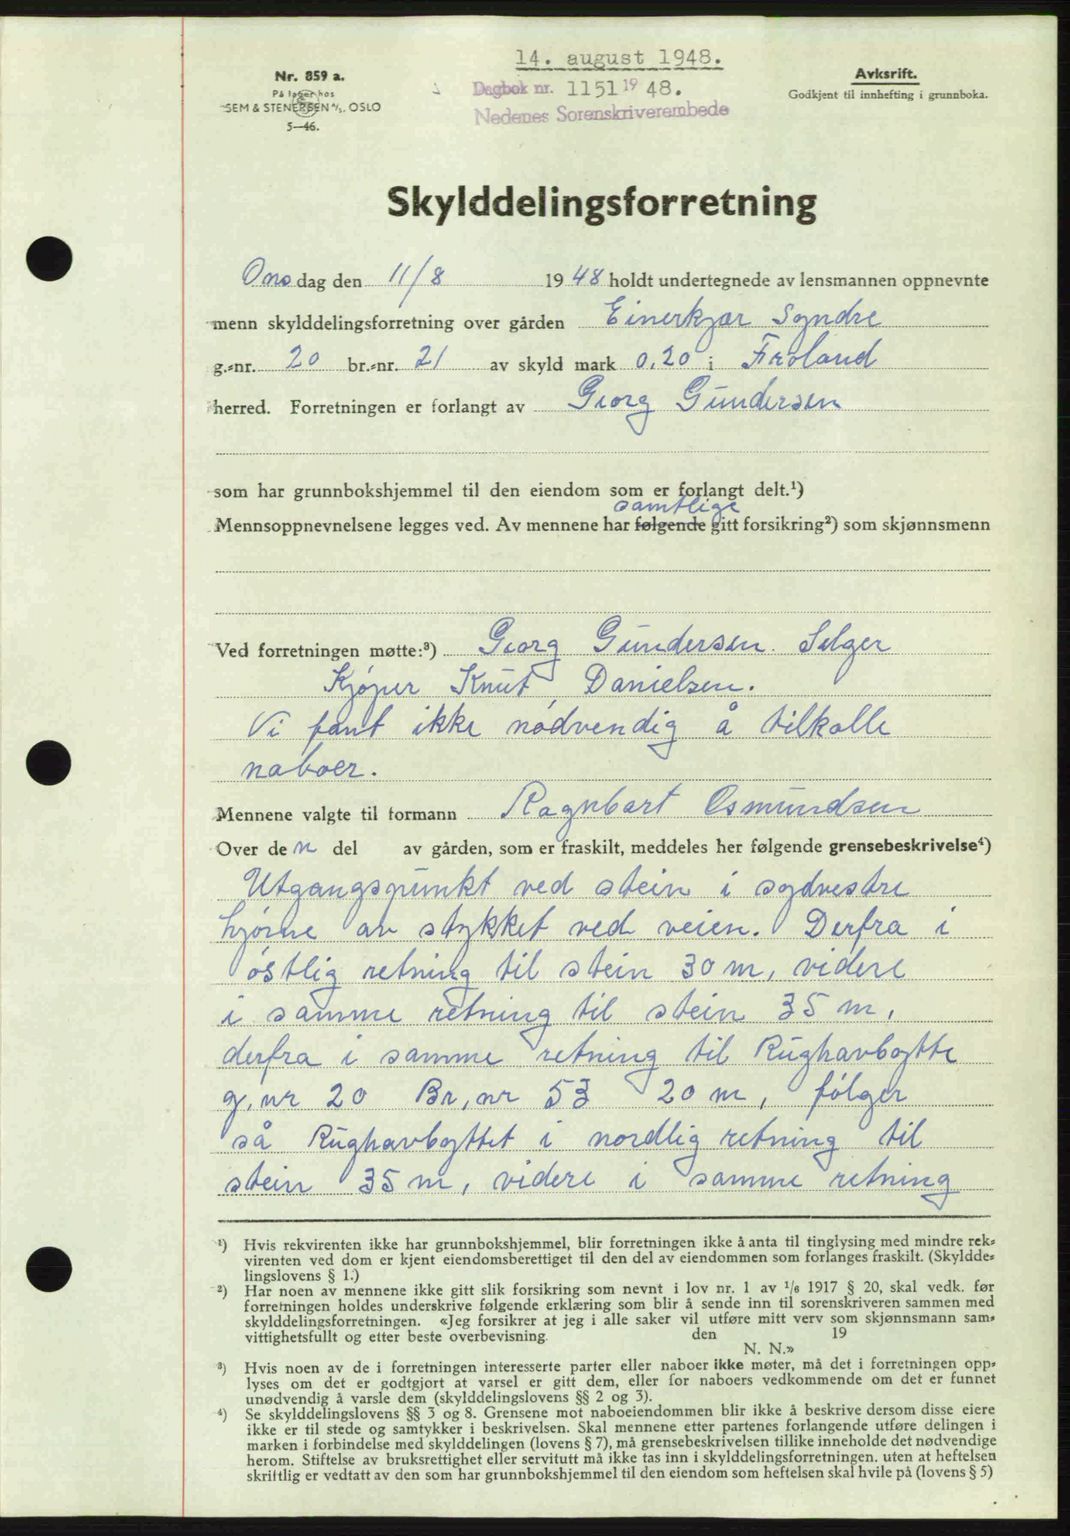 14. august 1948.
Nr. 859 a.
På lager hos
SEM & STENERSEN A/S. OSLO
5—46.
Dagbok nr. 1151 19 48.
Nedenes Sorenskriverembede
Avkskrift.
Godkjent til innhefting i grunnboka.
Skylddelingsforretning
Ons dag den 11/8 19 48 holdt undertegnede av lensmannen oppnevnte
menn skylddelingsforretning over gården Einerkjær Syndre
g.-nr. 20 br.-nr. 21 av skyld mark 0,20 i Froland
herred. Forretningen er forlangt av Georg Gundersen
som har grunnbokshjemmel til den eiendom som er forlangt delt.¹)
samtlige
Mennsoppnevnelsene legges ved. Av mennene har følgende gitt forsikring²) som skjønnsmenn
Ved forretningen møtte:³) Georg Gundersen. Selger
Kjøper Knut Danielsen.
Vi fant ikke nødvendig å tilkalle
naboer.
Mennene valgte til formann Ragnbart Osmundsen
Over de n del av gården, som er fraskilt, meddeles her følgende grensebeskrivelse⁴)
Utgangspunkt ved stein i sydvestre
hjørne av stykket ved veien. Derfra i
østlig retning til stein 30 m, videre
i samme retning til stein 35 m,
derfra i samme retning til Rughavbytte
g,nr 20 Br,nr 53 20 m, følger
så Rughavbyttet i nordlig retning til
stein 35 m, videre i samme retning
¹) Hvis rekvirenten ikke har grunnbokshjemmel, blir forretningen ikke å anta til tinglysing med mindre rek-
virenten ved dom er kjent eiendomsberettiget til den del av eiendommen som forlanges fraskilt. (Skyldde-
lingslovens § 1.)
²) Har noen av mennene ikke gitt slik forsikring som nevnt i lov nr. 1 av 1/6 1917 § 20, skal vedk. før
forretningen holdes underskrive følgende erklæring som blir å sende inn til sorenskriveren sammen med
skylddelingsforretningen. «Jeg forsikrer at jeg i alle saker vil utføre mitt verv som skjønnsmann sam-
vittighetsfullt og etter beste overbevisning. den 19
N. N.»
³) Hvis noen av de i forretningen interesserte parter eller naboer ikke møter, må det i forretningen opp-
lyses om det er godtgjort at varsel er gitt dem, eller for naboers vedkommende om det er funnet
unødvendig å varsle dem (skylddelingslovens §§ 2 og 3).
⁴) Se skylddelingslovens §§ 3 og 8. Grensene mot naboeiendommen blir ikke å beskrive dersom disse eiere
ikke er til stede og samtykker i beskrivelsen. Skal mennene etter partenes forlangende utføre delingen i
marken i forbindelse med skylddelingen (lovens § 7), må grensebeskrivelsen tillike inneholde det nødvendige
herom. Stiftelse av bruksrettighet eller servitutt må ikke tas inn i skylddelingsforretningen. uten at heftelsen
skriftlig er vedtatt av den som har grunnbokshjemmel til den eiendom som heftelsen skal hvile på (lovens § 5)